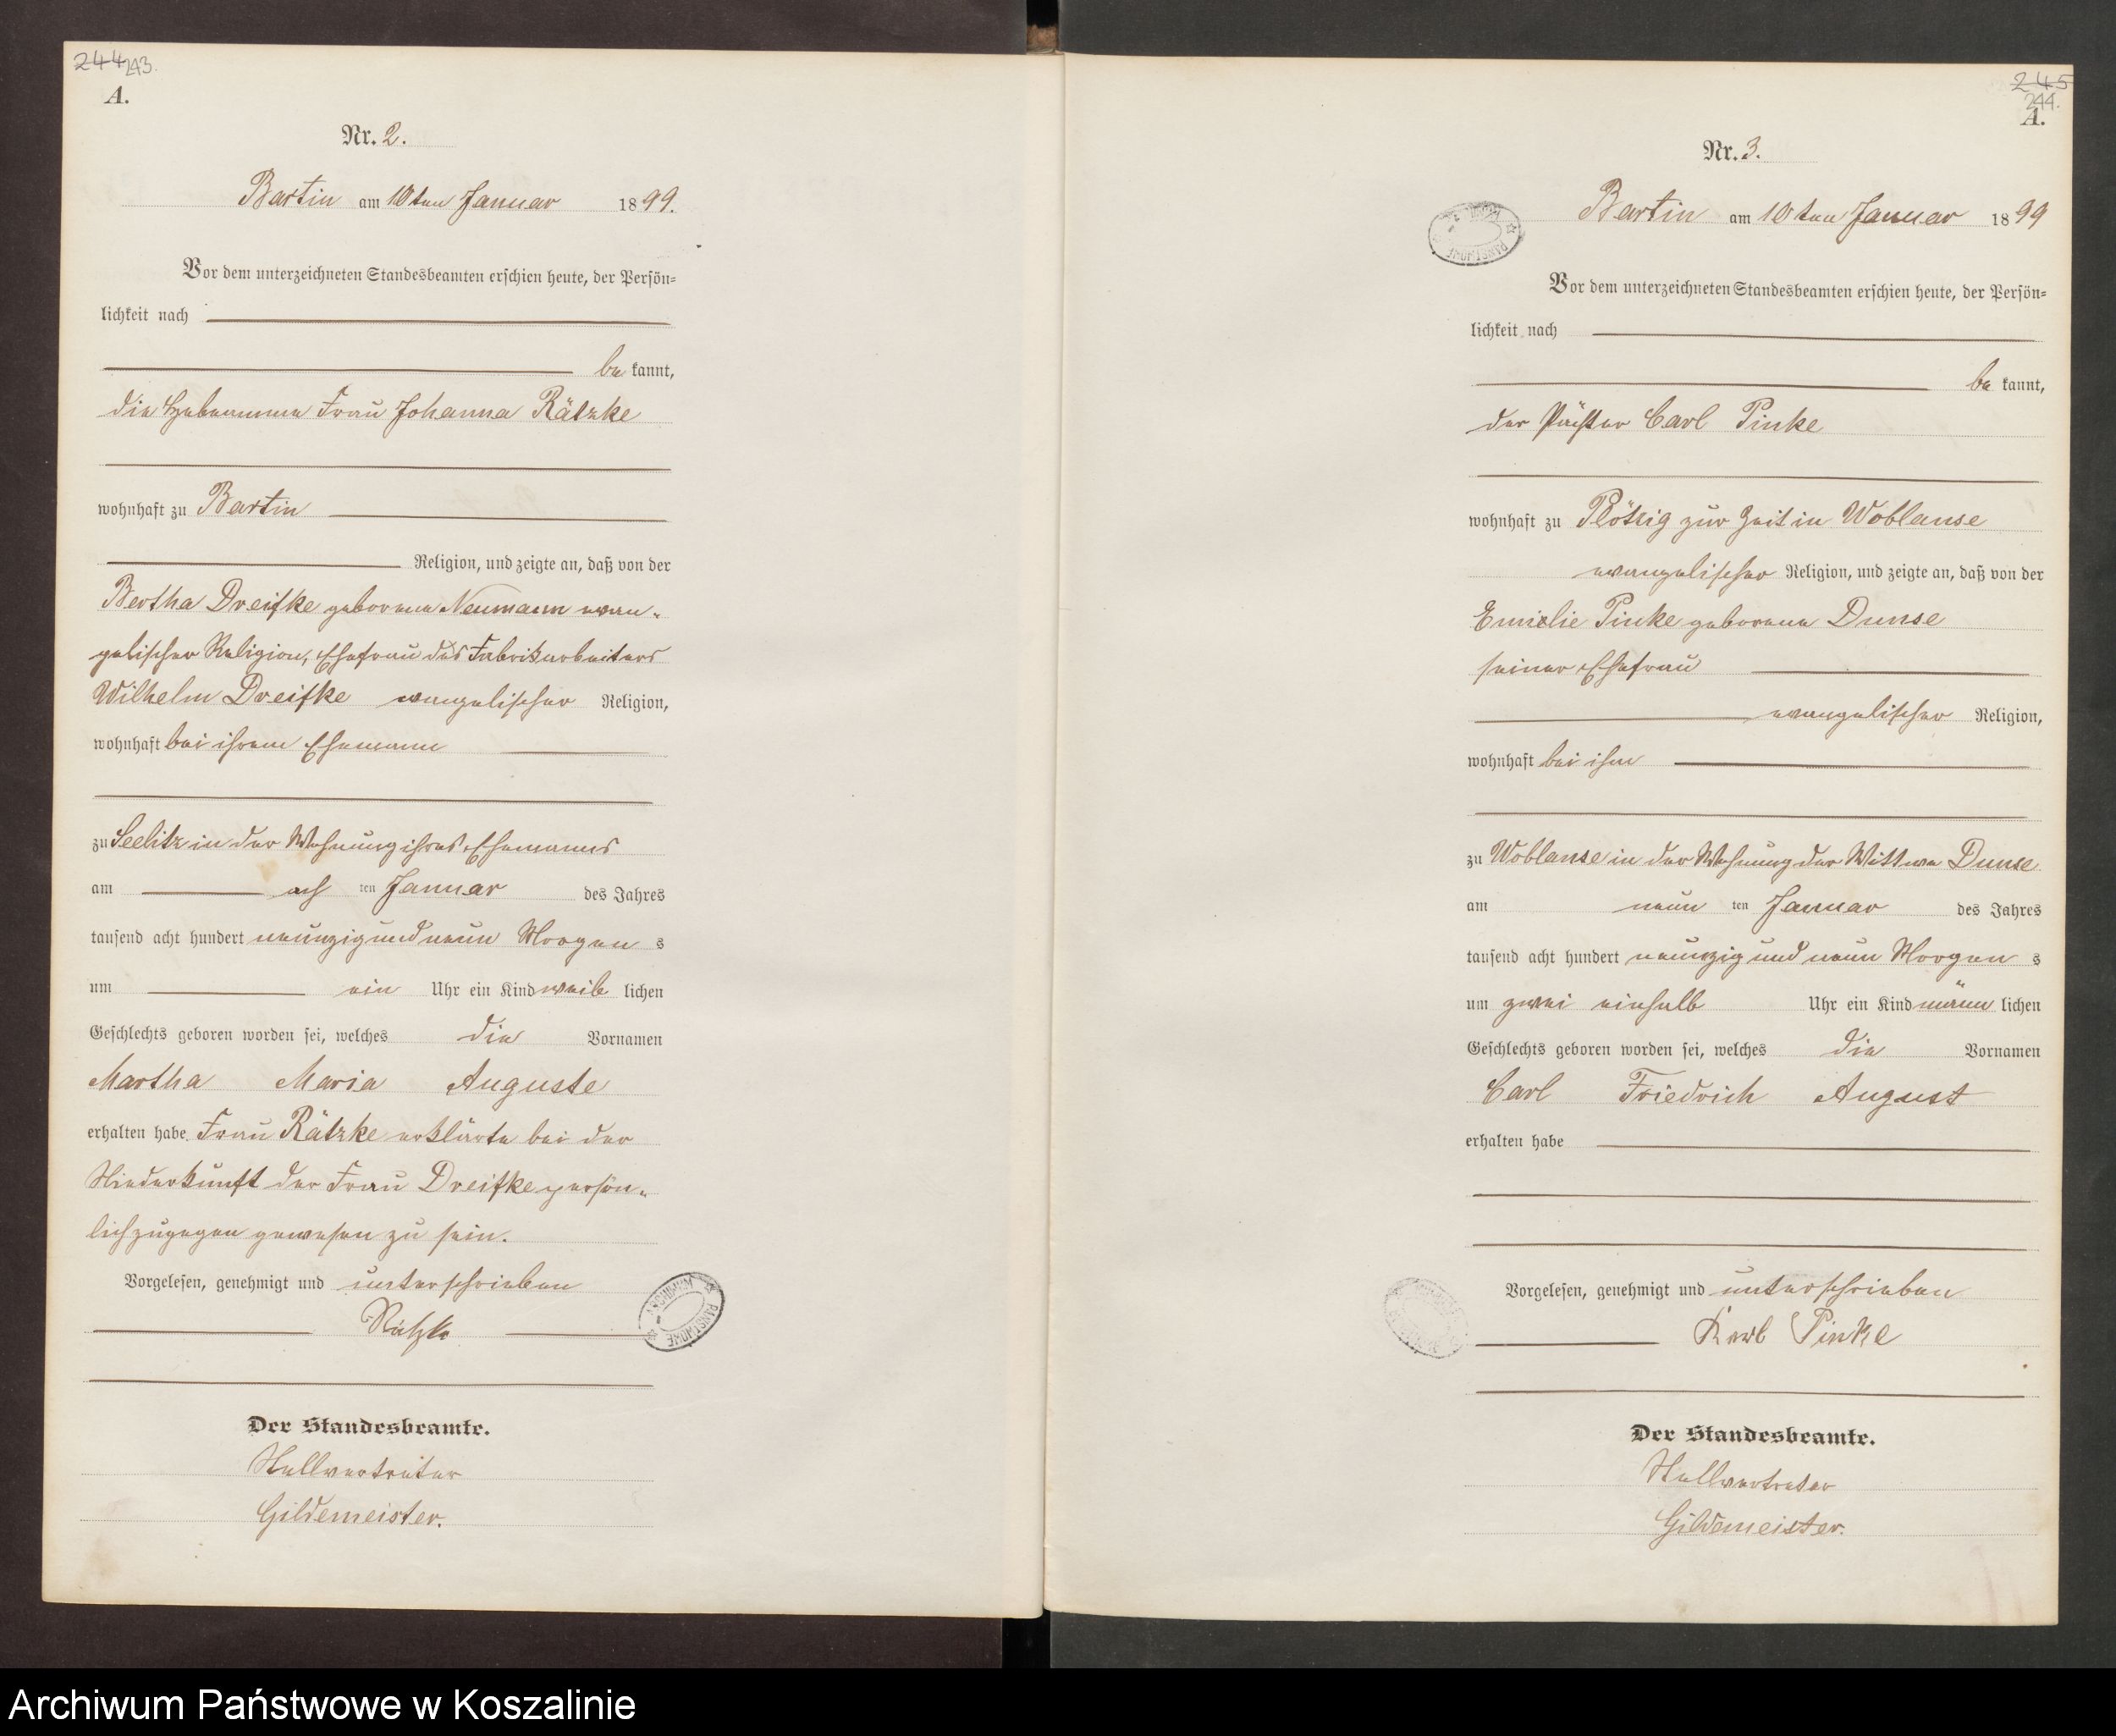 244 243.
A.
Nr. 2.
Bartin am 10ten Januar 1899.
Vor dem unterzeichneten Standesbeamten erschien heute, der Persön=
lichkeit nach
be kannt,
die Hebeamme Frau Johanna Rätzke
wohnhaft zu Bartin
Religion, und zeigte an, daß von der
Bertha Dreifke geborene Neumann evan-
gelischer Religion, Ehefrau des Fabrikarbeiters
Wilhelm Dreifke evangelischer Religion,
wohnhaft bei ihrem Ehemann
zu Seelitz in der Wohnung ihres Ehemanns
am ach ten Januar des Jahres
tausend acht hundert neunzig und neun Morgen s
um ein Uhr ein Kind weib lichen
Geschlechts geboren worden sei, welches die Vornamen
Martha Maria Auguste
erhalten habe. Frau Rätzke erklärte bei der
Niederkunft der Frau Dreifke persön-
lich zugegen gewesen zu sein.
Vorgelesen, genehmigt und unterschrieben
Rätzke
ARCHIWUM PAŃSTWOWE
Der Standesbeamte.
Stellvertreter
Gildemeister.
245
244.
A.
Nr. 3.
Bartin am 10ten Januar 1899
Vor dem unterzeichneten Standesbeamten erschien heute, der Persön=
lichkeit nach
be kannt,
der Pächter Carl Pinke
wohnhaft zu Plötzig zur Zeit in Woblanse
evangelischer Religion, und zeigte an, daß von der
Emielie Pinke geborene Dunse
seiner Ehefrau
evangelischer Religion,
wohnhaft bei ihm
zu Woblanse in der Wohnung der Wittwe Dunse
am neun ten Januar des Jahres
tausend acht hundert neunzig und neun Morgen s
um zwei einhalb Uhr ein Kind männ lichen
Geschlechts geboren worden sei, welches die Vornamen
Carl Friedrich August
erhalten habe
Vorgelesen, genehmigt und unterschrieben
Karl Pinke
Der Standesbeamte.
Stellvertreter
Gildemeister.
Archiwum Państwowe w Koszalinie